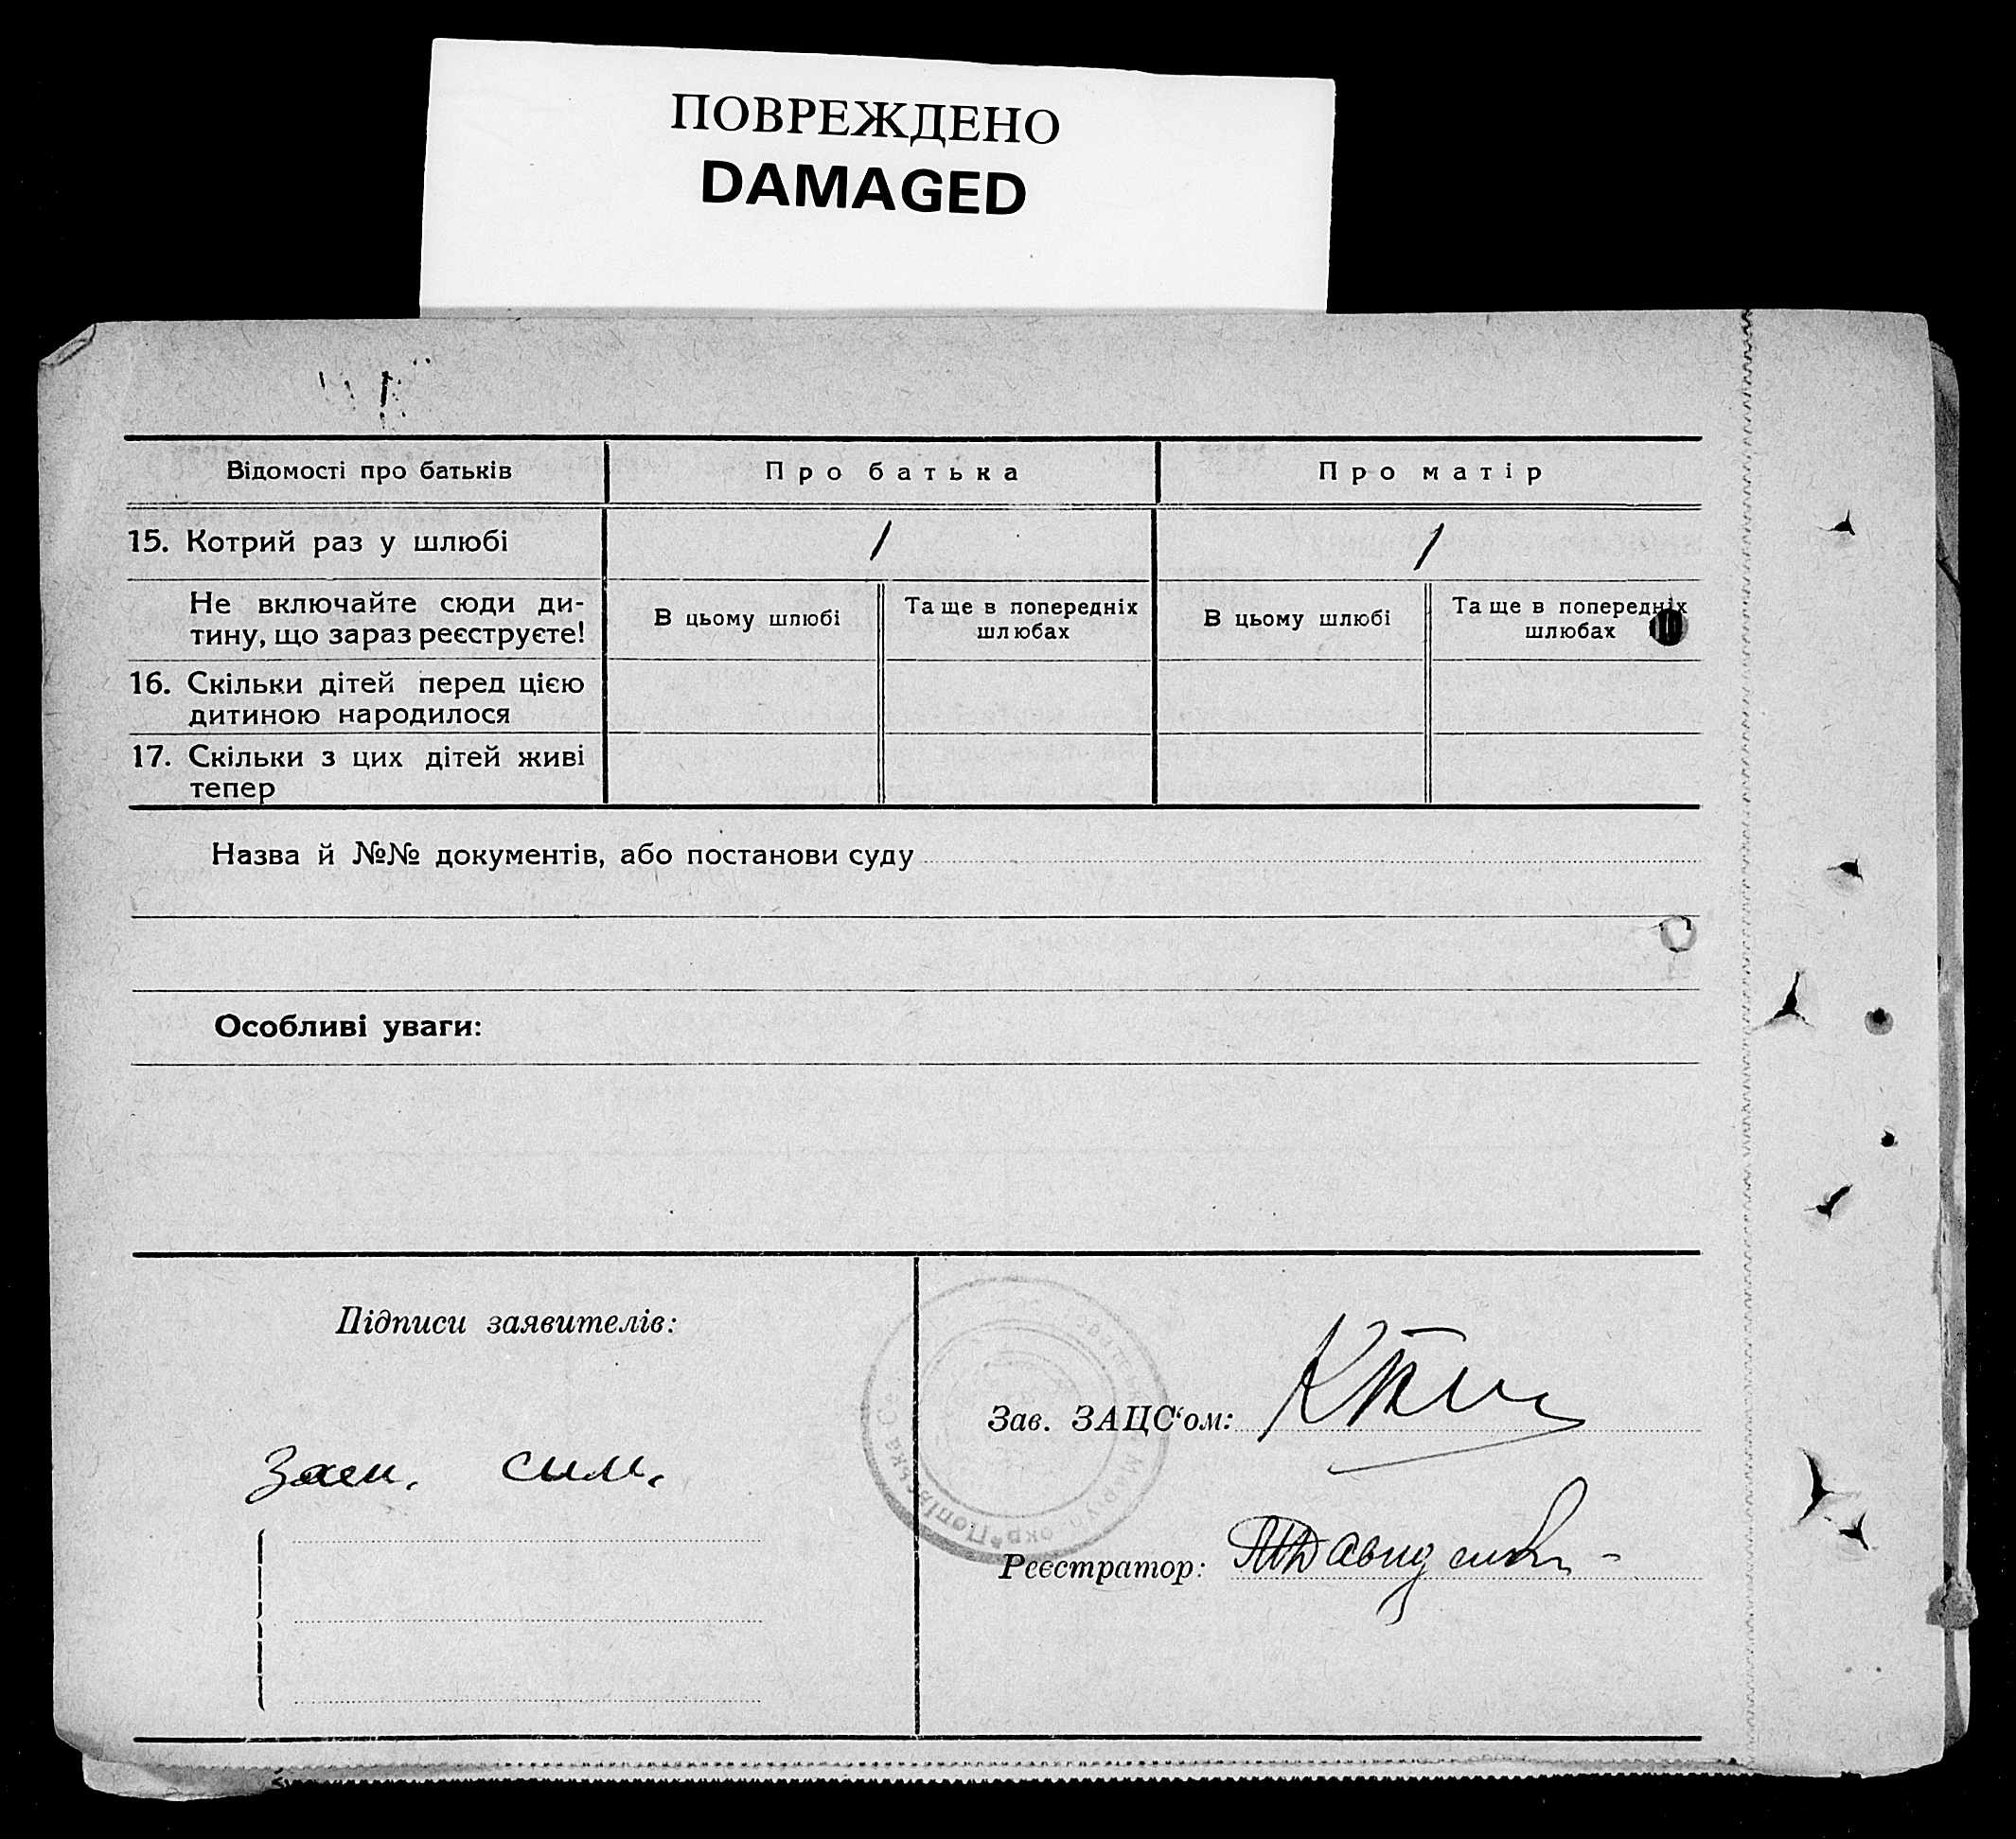 ПОВРЕЖДЕНО
DAMAGED
Відомості про батьків
Про батька
Про матір
15. Котрий раз у шлюбі
1
1
Не включайте сюди ди-
тину, що зараз реєструєте!
В цьому шлюбі
Та ще в попередніх
шлюбах
В цьому шлюбі
Та ще в попередніх
шлюбах
16. Скільки дітей перед цією
дитиною народилося
17. Скільки з цих дітей живі
тепер
Назва й №№ документів, або постанови суду
Особливі уваги:
Підписи заявителів:
Зав. ЗАЦС‘ом:
Реєстратор: